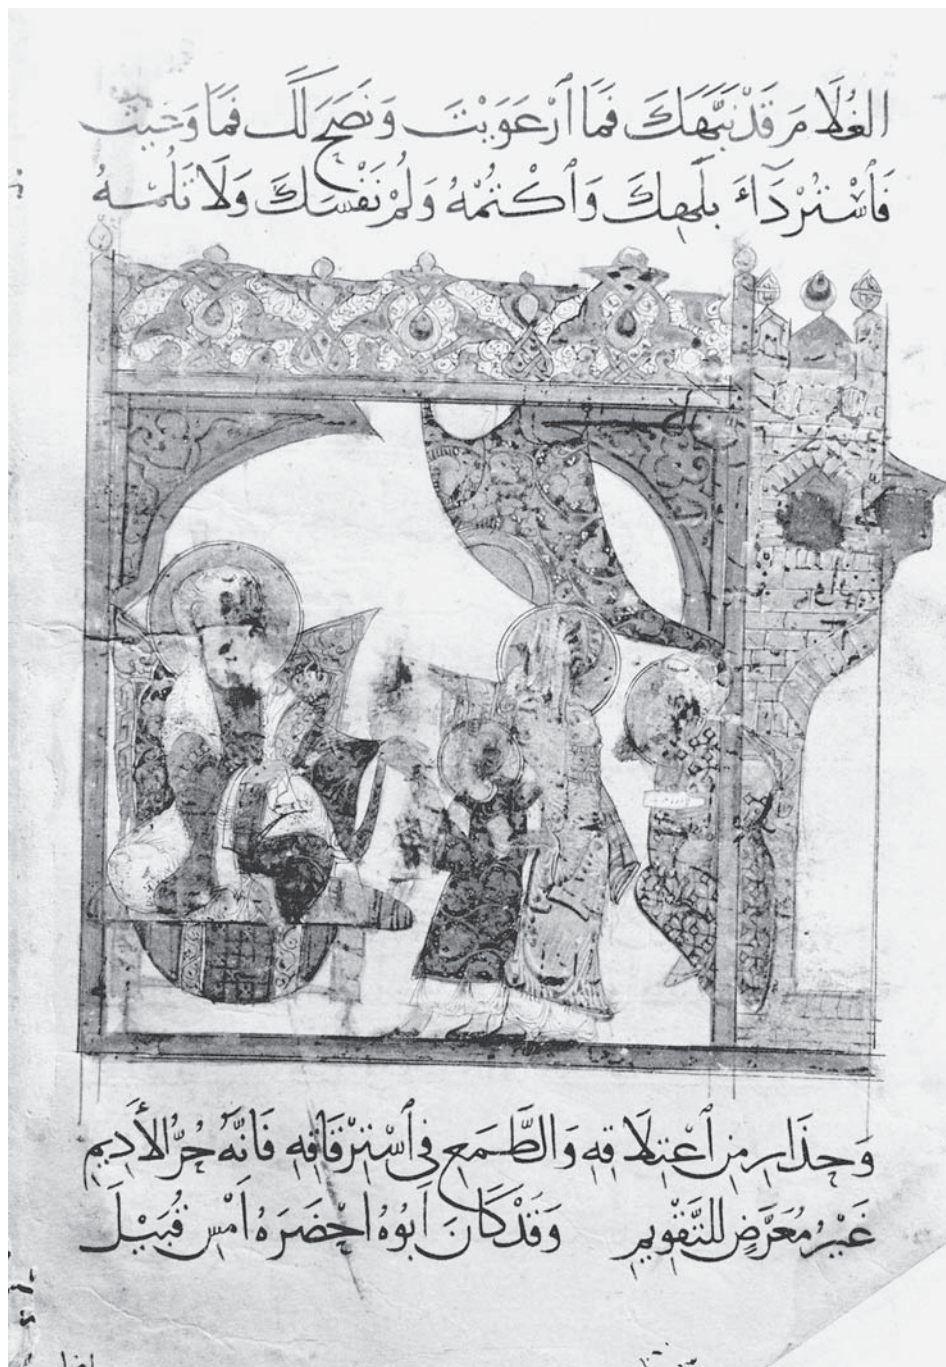 الغُلَامَ قَدْ نَبَّهَكَ فَمَا ٱرْعَوَيْتَ وَنَصَحَ لَكَ فَمَا وَعَيْتَ
فَٱسْتُرْ دَآءَ بَلَهِكَ وَٱكْتُمْهُ وَلُمْ نَفْسَكَ وَلَا تَلُمْهُ
وَحَذَارِ مِن ٱعْتِلَاقِهِ وَالطَّمَعِ فِي ٱسْتِرْقَاقِهِ فَانَّهُ حُرُّ الأَدِيمِ
غَيْرُ مُعَرَّضٍ لِلتَّقْوِيمِ وَقَدْ كَانَ اَبُوهُ احْضَرَهُ اَمْسِ قُبَيْلَ